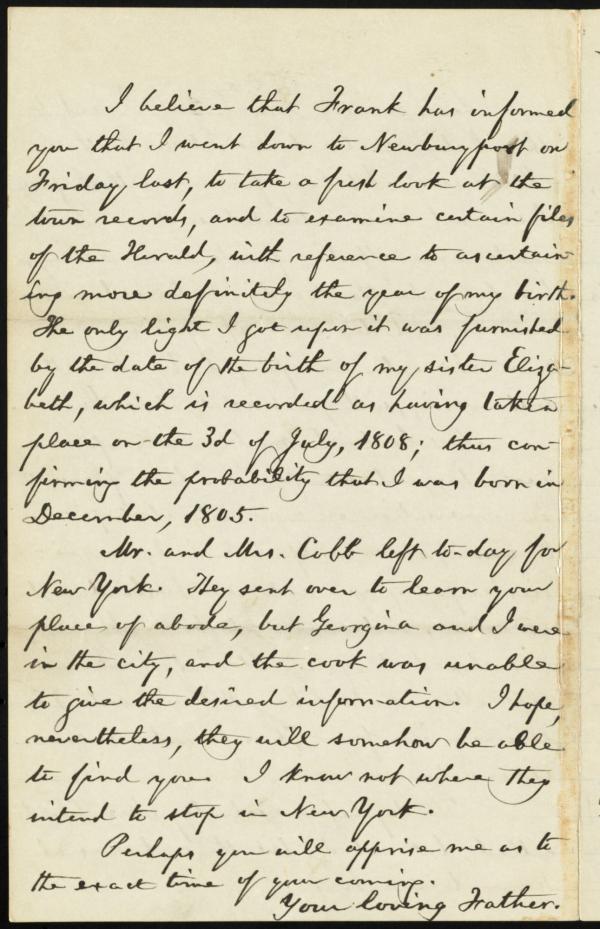 I believe that Frank has informed
you that I went down to Newburyport on
Friday last, to take a fresh look at the
town records, and to examine certain files
of the Herald, with reference to ascertain-
ing more definitely the year of my birth.
The only light I got upon it was furnished
by the date of the birth of my sister Eliza-
beth, which is recorded as having taken
place on the 3d of July, 1808; thus con-
firming the probability that I was born in
December, 1805.
Mr. and Mrs. Cobb left to-day for
New York. They sent over to learn your
place of abode, but Georgina and I were
in the city, and the cook was unable
to give the desired information. I hope,
nevertheless, they will somehow be able
to find you. I know not where they
intend to stop in New York.
Perhaps you will apprise me as to
the exact time of your coming.
Your loving Father.